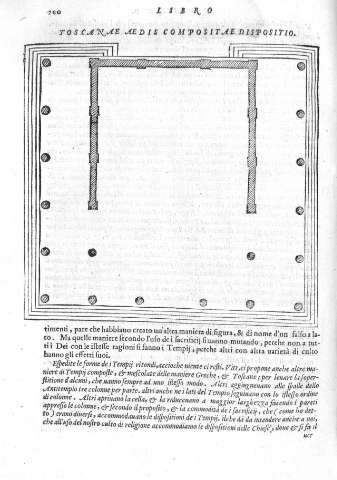 200 LIBRO
TOSCANAE AEDIS COMPOSITAE DISPOSITIO.
timenti, pare che habbiano creato un'altra maniera di figura, & di nome d'un falso a la-
to. Ma quelle maniere secondo l'uso de i sacrificij si uanno mutando, perche non a tut-
ti i Dei con le istesse ragioni si fanno i Tempij, perche altri con altra varietà di culto
hanno gli effetti suoi.
Espedite le forme de i Tempij ritondi, accioche niente ci resti, Vitr. ci propone anche altre ma-
niere di Tempij composte, & mescolate delle maniere Greche, & Toscane; per leuare la super-
stitione d'alcuni, che uanno sempre ad uno istesso modo. Altri aggiugneuano alle spalle dello
Antitempio tre colonne per parte, altri anche ne i lati del Tempio seguitauano con lo istesso ordine
di colonne. Altri apriuano la cella, & la riduceuano a maggior larghezza facendo i pareti
appresso le colonne, & secondo il proposito, & la commodità de i sacrificij, che (come ho det-
to) erano diuersi, accommodauano le dispositioni de i Tempij. Ilche da da intendere anche a noi,
che all'uso del nostro culto di religione accommodiamo le dispositioni delle Chiese, doue & si fa il